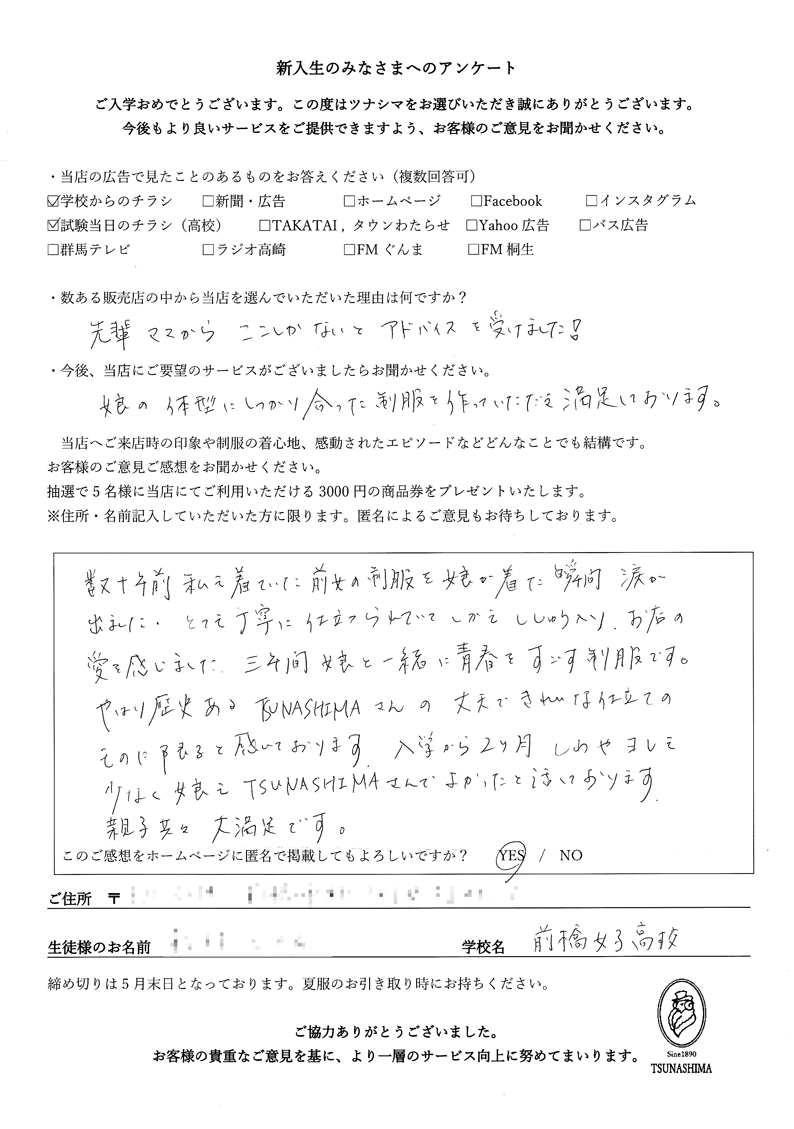 新入生のみなさまへのアンケート
ご入学おめでとうございます。この度はツナシマをお選びいただき誠にありがとうございます。
今後もより良いサービスをご提供できますよう、お客様のご意見をお聞かせください。
・当店の広告で見たことのあるものをお答えください（複数回答可）
☑学校からのチラシ □新聞・広告 □ホームページ □Facebook □インスタグラム
☑試験当日のチラシ（高校） □TAKATAI , タウンわたらせ □Yahoo 広告 □バス広告
□群馬テレビ □ラジオ高崎 □FM ぐんま □FM 桐生
・数ある販売店の中から当店を選んでいただいた理由は何ですか？
先輩ママから ここしかないと アドバイスを受けました！
・今後、当店にご要望のサービスがございましたらお聞かせください。
娘の体型にしっかり合った制服を作っていただき満足しております。
当店へご来店時の印象や制服の着心地、感動されたエピソードなどどんなことでも結構です。
お客様のご意見ご感想をお聞かせください。
抽選で 5 名様に当店にてご利用いただける 3000 円の商品券をプレゼントいたします。
※住所・名前記入していただいた方に限ります。匿名によるご意見もお待ちしております。
数十年前 私も着ていた前女の制服を娘が着た瞬間 涙が
出ました。とても丁寧に仕立てられていて しかも ししゅう入り、お店の
愛を感じました。三年間 娘と一緒に青春をすごす制服です。
やはり歴史ある TSUNASHIMA さんの 丈夫できれいな仕立ての
ものに限ると感じております。入学から2ヶ月 しわやヨレも
少なく 娘も TSUNASHIMA さんでよかったと話しております。
親子共々 大満足です。
このご感想をホームページに匿名で掲載してもよろしいですか？ YES / NO
ご住所 〒
生徒様のお名前 学校名 前橋女子高校
締め切りは 5 月末日となっております。夏服のお引き取り時にお持ちください。
ご協力ありがとうございました。
お客様の貴重なご意見を基に、より一層のサービス向上に努めてまいります。
Sine1890
TSUNASHIMA